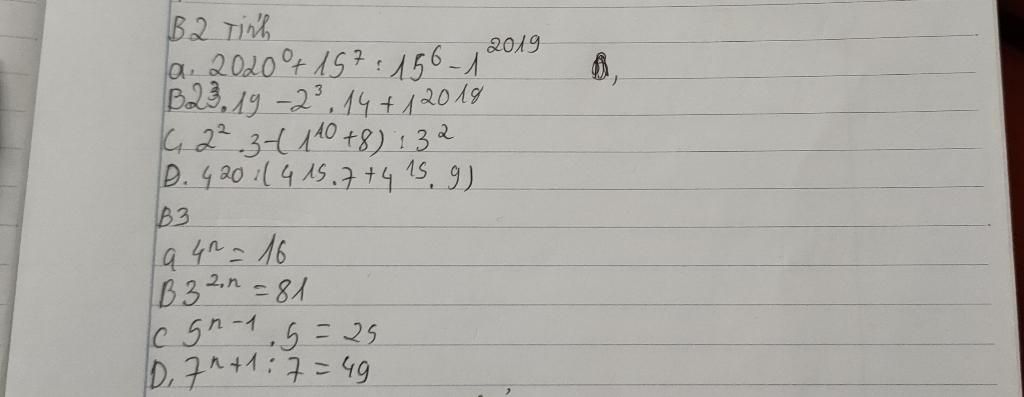 B2 Tính
a. 2020⁰ + 15⁷ : 15⁶ - 1²⁰¹⁹
B 2³.19 - 2³.14 + 1²⁰¹⁸
C, 2².3-(1¹⁰+8) : 3²
D. 420:(415.7+4¹⁵.9)
B3
a 4ⁿ = 16
B 3²·ⁿ = 81
C 5ⁿ⁻¹.5 = 25
D, 7ⁿ⁺¹ : 7 = 49